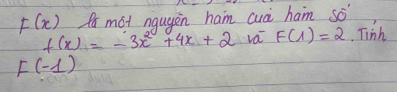 F(x) là một nguyên hàm của hàm số
f(x) = -3x² + 4x + 2 và F(1) = 2. Tính
F(-1)